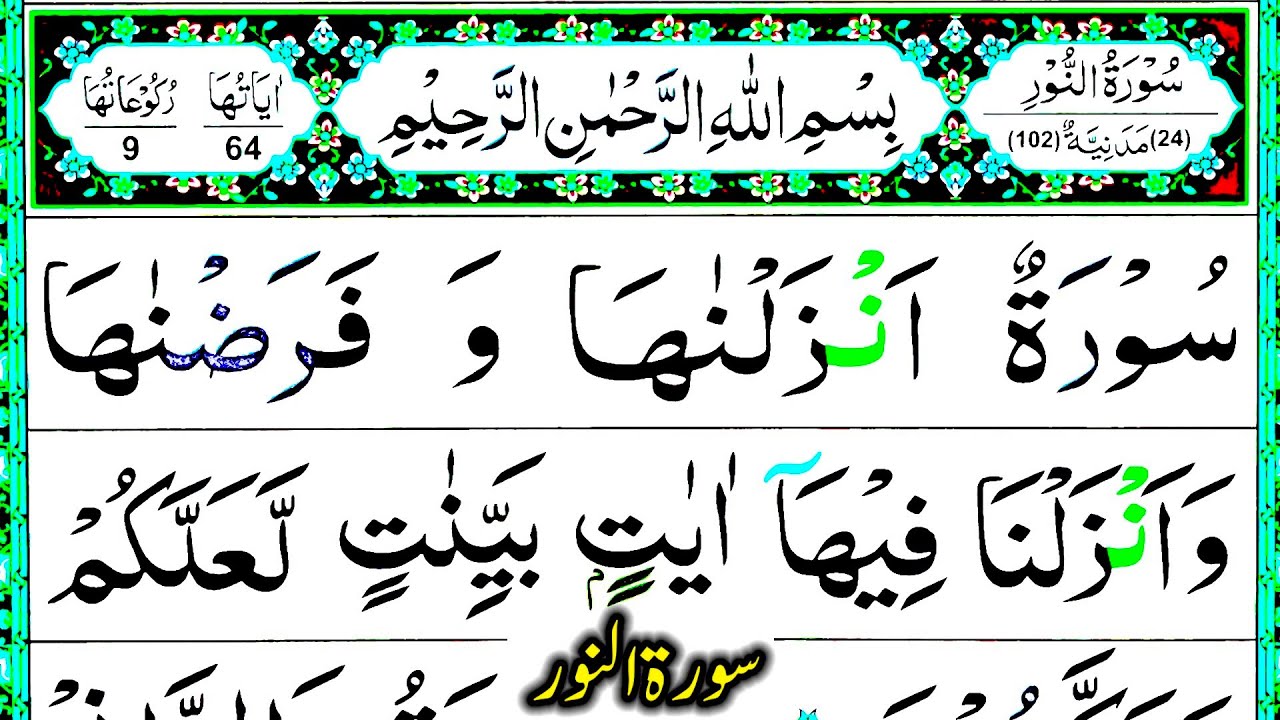 سُوْرَةُ النُّوْرِ
(24) مَدَنِيَّةٌ (102)
بِسْمِ اللّٰهِ الرَّحْمٰنِ الرَّحِيْمِ
اٰيَاتُهَا 64
رُكُوْعَاتُهَا 9
سُوْرَةٌ اَنْزَلْنٰهَا وَ فَرَضْنٰهَا
وَاَنْزَلْنَا فِيْهَاۤ اٰيٰتٍۭ بَيِّنٰتٍ لَّعَلَّكُمْ
سورة النور